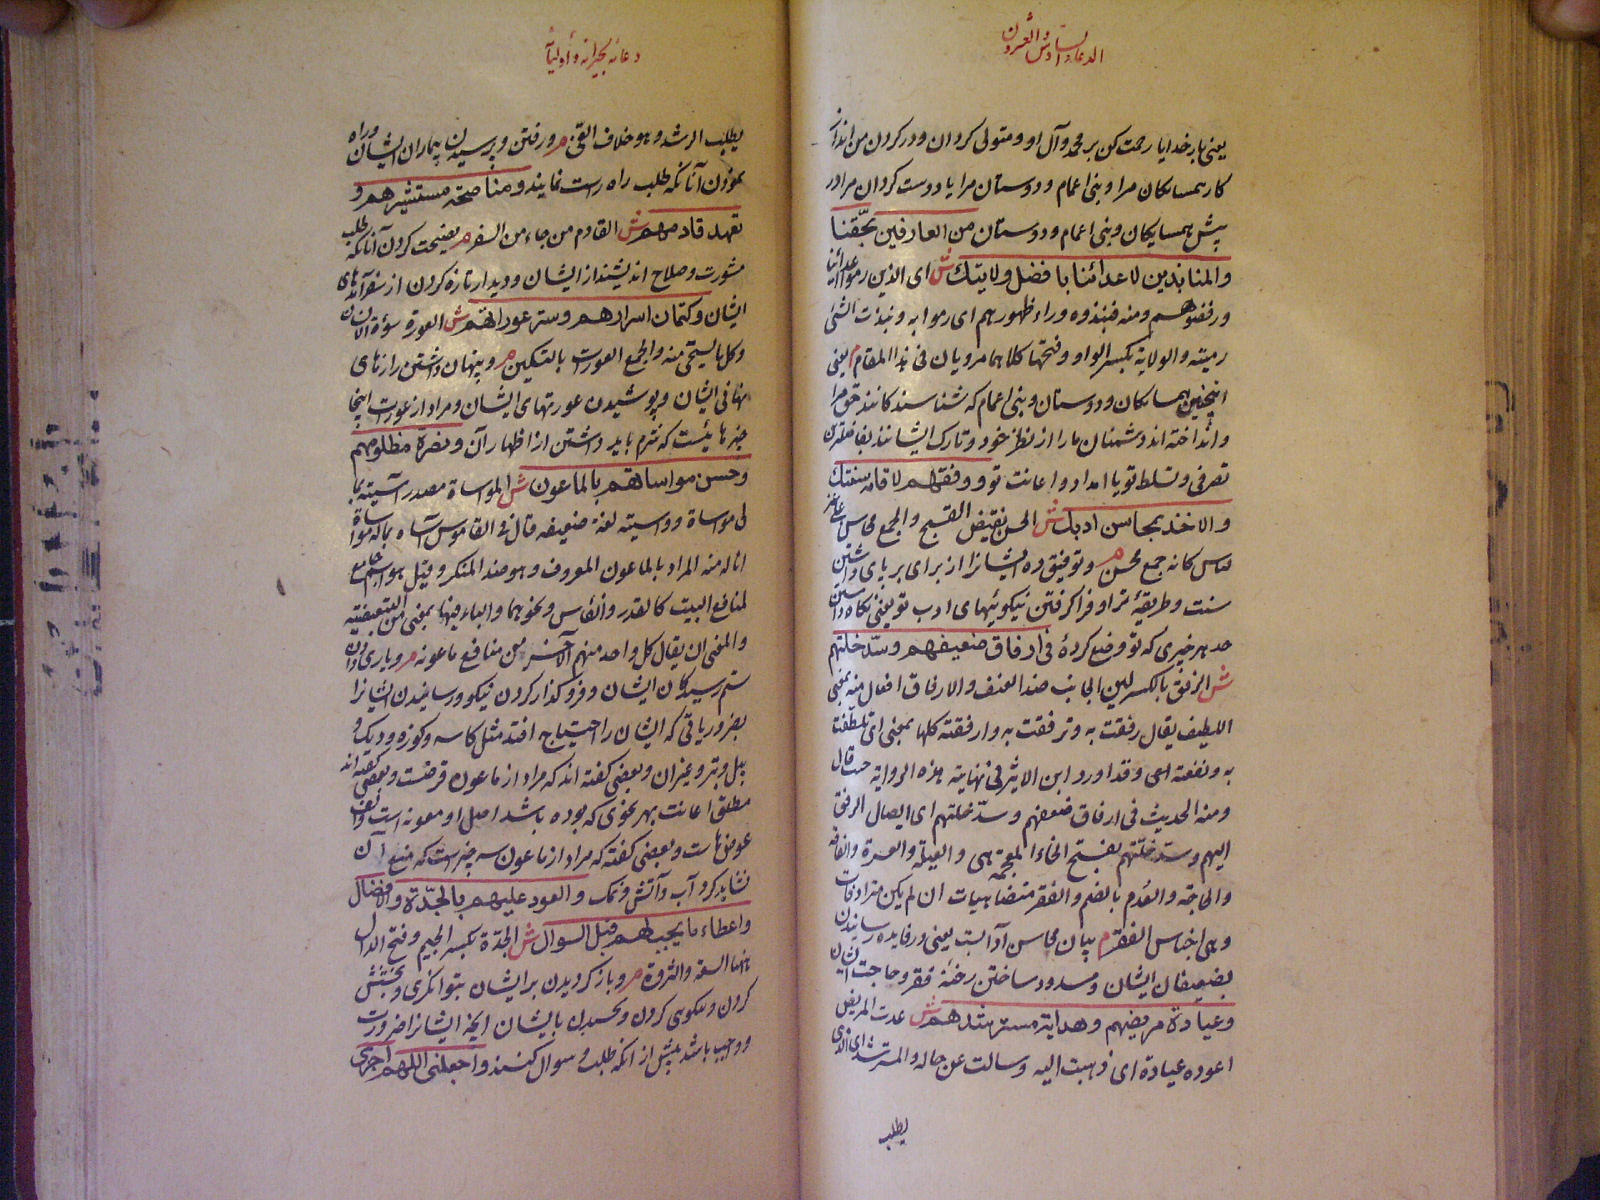 الدعاء السادس والعشرون
یعنی بار خدایا رحمت کن بر محمد وآل او ومتولی کردان ودر کردن من انداز
کار همسایکان مرا وبنی اعمام ودوستان مرا یا دوست کردان مرا در
پیش همسایکان وبنی اعمام ودوستان من العارفین بحقنا
والمنابذین لاعدائنا بافضل ولایتک ش ای الذین رموا اعدائنا
ورفضوهم ومنه فنبذوه وراء ظهورهم ای رموا به ونبذت الشئ
رمیته والولایة بکسر الواو وفتحها کلاهما مرویان فی هذا المقام م یعنی
اینچنین همسایکان ودوستان وبنی اعمام که شناسندکانند حق مرا
وانداخته اند دشمنان ما را از نظر خود وتارک ایشانند بفاضلترین
تصرفی وتسلط تو یا امداد واعانت تو ووفقهم لاقامة سنتک
والاخذ بمحاسن ادبک ش الحسن نقیض القبیح والجمع محاسن علی غیر
قیاس کانه جمع محسن م وتوفیق ده ایشانرا از برای بر پای داشتن
سنت وطریقهٔ تو وفرا کرفتن نیکوئیهای ادب تو یعنی نکاه داشتن
حد هر خیری که تو وضع کردهٔ فی ارفاق ضعیفهم وسد خلتهم
ش الرفق بالکسر لین الجانب ضد العنف والارفاق افعال منه بمعنی
اللطیف یقال رفقت به وترفقت به وارفقته کلها بمعنی ای تلطفت
به ونفعته اهی وقد اورد ابن الاثیر فی نهایته هذه الروایة حیث قال
ومنه الحدیث فی ارفاق ضعیفهم وسد خلتهم ای ایصال الرفق
الیهم وسد خلتهم بفتح الخاء المعجمة هی والعیلة والعسرة والفاقة
والحاجة والعُدم بالضم والفقر متضاهیات ان لم یکن مترادفات
وهی اجناس الفقر م بیان محاسن آدابست یعنی در فایده رسانیدن
بضعیفان ایشان ومسدود ساختن رخنهٔ فقر وحاجت ایشان
وعیادة مریضهم وهدایة مسترشدهم ش عدت المریض
اعوده عیادة ای ذهبت الیه وسالت عن حاله والمسترشد ای الذی
یطلب
دعائه لجیرانه واولیائه
یطلب الرشد وهو خلاف الغی م ورفتن وپرسیدن بیماران ایشان وراه
نمودن آنانکه طلب راه راست نمایند ومناصحة مستشیرهم و
تعهد قادمهم ش القادم من جاء من السفر م یعنی نصیحت کردن آنانکه طلب
مشورت وصلاح اندیشند از ایشان ودیدار تازه کردن از سفر آمدهای
ایشان وکتمان اسرارهم وستر عوراتهم ش العورة سوءة الانسان
وکل ما یستحیی منه والجمع العورات بالتسکین م وپنهان داشتن رازهای
نهانی ایشان وپوشیدن عورتهای ایشان ومراد از عورت اینجا
چیزهائیست که شرم باید داشتن از اظهار آن ونصرة مظلومهم
وحسن مواساتهم بالماعون ش المواساة مصدر آسیته بما
لی مواساة وواسیته لغة ضعیفة قال فی القاموس آساه بماله مواساة
اناله منه المراد بالماعون المعروف وهو ضد المنکر وقیل هو اسم جامع
لمنافع البیت کالقدر والفأس ونحوهما والباء فیها بمعنی من التبعیضیة
والمعنی ان یقال کل واحد منهم الآخر من منافع ماعونه م ویاری دادن
ستم رسیدکان ایشان وفرو کذار کردن نیکو ورسانیدن ایشانرا
بضروریاتی که ایشان را احتیاج افتد مثل کاسه وکوزه ودیک و
بیل وتبر ومیزان وبعضی کفته اند که مراد از ماعون قرضت وبعضی کفته اند
مطلق اعانت بهر نحوی که بوده باشد اصل او معونه است والف
عوض هاست وبعضی کفته که مراد از ماعون سه چیز است که منع آن
نشاید کرد آب وآتش ونمک والعود علیهم بالجدة والافضال
واعطاء ما یجب لهم قبل السؤال ش الجدة بکسر الجیم وفتح الدال
انها السعة والثروة م وباز کردیدن بر ایشان بتوانکری وبخشش
کردن ونیکوئی کردن وبخشیدن بایشان آنچه ایشانرا ضرورت
وواجب باشد پیش از آنکه طلب وسوال کنند واجعلنی اللهم اجزی